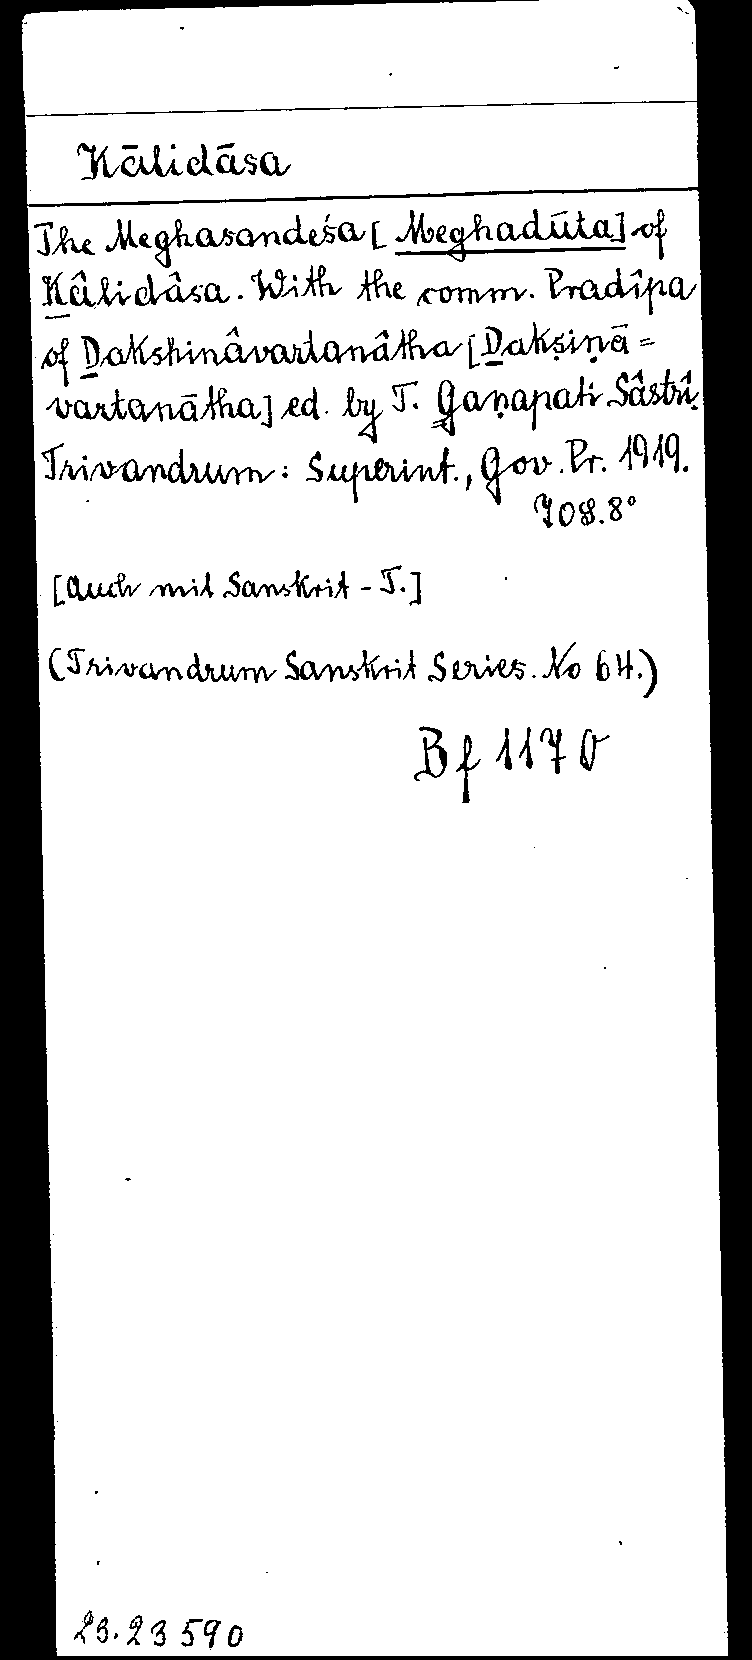 Kālidāsa
The Meghasandeśa [Meghadūta] of
Kâlidâsa. With the comm. Pradîpa
of Dakshinâvartanâtha [Dakṣiṇā=
vartanātha] ed. by T. Gaṇapati Sâstrî.
Trivandrum: Superint., Gov. Pr. 1919.
708. 8°
[Auch mit Sanskrit-T.]
(Trivandrum Sanskrit Series. No 64.)
Bf 1170
23.23590